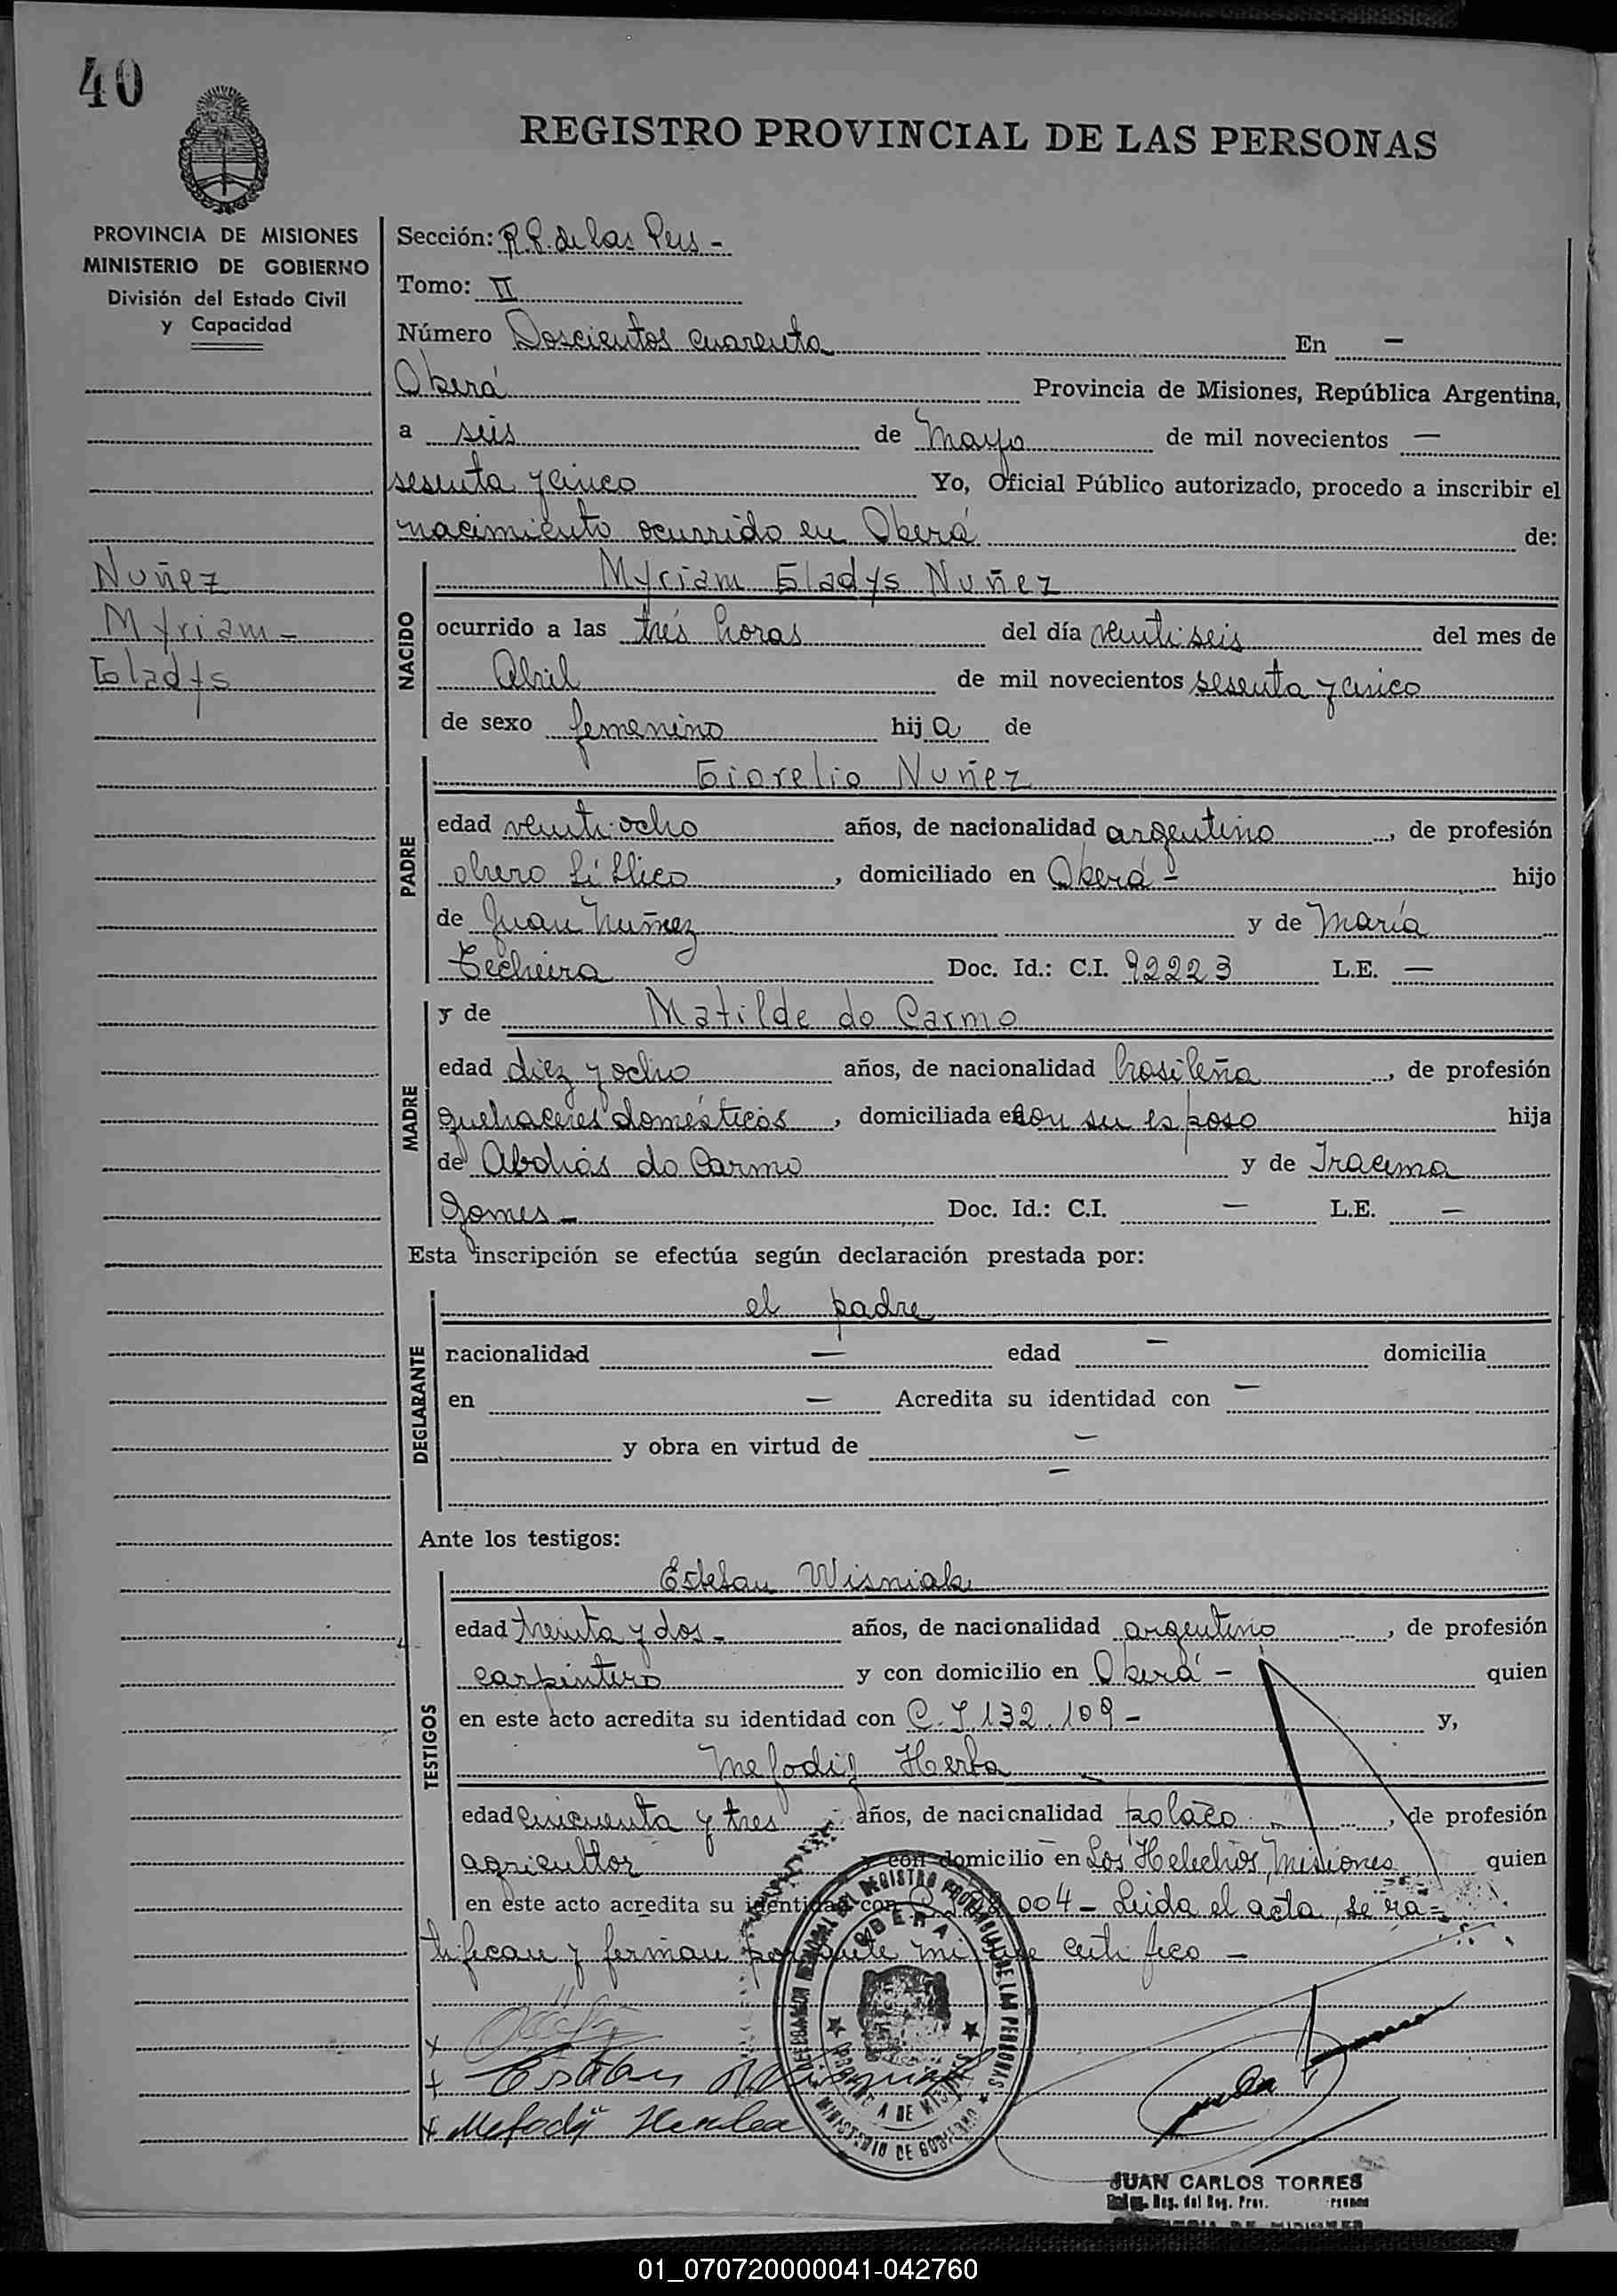 40
REGISTRO PROVINCIAL DE LAS PERSONAS
PROVINCIA DE MISIONES
MINISTERIO DE GOBIERNO
División del Estado Civil
y Capacidad
Sección: R.P. de las Pers -
Tomo: II
Número Doscientos cuarenta En —
Oberá Provincia de Misiones, República Argentina,
a seis de Mayo de mil novecientos —
sesenta y cinco Yo, Oficial Público autorizado, procedo a inscribir el
nacimiento ocurrido en Oberá de:
Nuñez
Myriam -
Gladys
NACIDO
Myriam Gladys Nuñez
ocurrido a las tres horas del día veintiseis del mes de
Abril de mil novecientos sesenta y cinco
de sexo femenino hija de
PADRE
Giorelio Nuñez
edad veintiocho años, de nacionalidad argentino, de profesión
obrero, domiciliado en Oberá - hijo
de Juan Nuñez y de María
Techeira Doc. Id.: C.I. 92223 L.E. —
MADRE
y de Matilde do Carmo
edad diez y ocho años, de nacionalidad brasileña, de profesión
quehaceres domésticos, domiciliada con su esposo hija
de Abdias do Carmo y de Iracema
Gomes - Doc. Id.: C.I. — L.E. —
Esta inscripción se efectúa según declaración prestada por:
DECLARANTE
el padre
nacionalidad — edad — domicilia
en — Acredita su identidad con —
y obra en virtud de —
—
Ante los testigos:
TESTIGOS
Esteban Wisniak
edad treinta y dos - años, de nacionalidad argentino, de profesión
carpintero y con domicilio en Oberá - quien
en este acto acredita su identidad con C.I 132.109 - y,
Mefodij Herba
edad cincuenta y tres años, de nacionalidad polaco, de profesión
agricultor y con domicilio en Los Helechos, Misiones quien
en este acto acredita su identidad con 004 - Leida el acta, se ra=
tifican y firman por ante mi que certifico -
OBERA
PROVINCIA DE MISIONES
MINISTERIO DE GOBIERNO
JUAN CARLOS TORRES
01_070720000041-042760